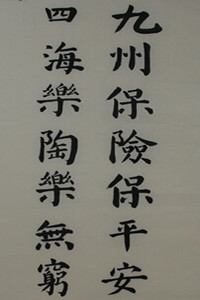 九州保險保平安
四海樂陶樂無窮